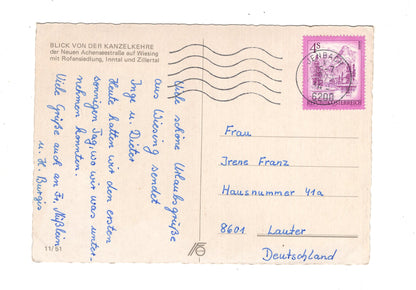 BLICK VON DER KANZELKEHRE
der Neuen Achenseestraße auf Wiesing
mit Rofansiedlung, Inntal und Zillertal
Viele schöne Urlaubsgrüße
aus Wiesing sendet
Inge u. Dieter
Heute hatten wir den ersten
sonnigen Tag, wo wir was unter-
nehmen konnten.
Viele Grüße auch an Fr. Nüßlein
u. H. Burgis
11/51
4 S
REPUBLIK ÖSTERREICH
JENBACH
6200
Frau
Irene Franz
Hausnummer 41a
8601 Lauter
Deutschland